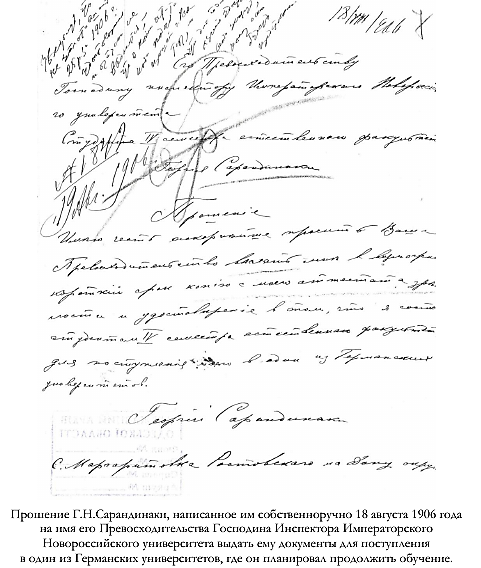 18/VIII/1906
Его Превосходительству
Господину инспектору Императорскаго Новоросс
го университета
Студента IV семестра естественнаго факультета
Георгія Сарандинаки
№ 1817
19 Авг. 1906
Прошеніе
Имѣю честь покорнѣйше просить Ваше
Превосходительство выслать мнѣ в
короткій срок копію с моего аттестата зрѣ
лости и удостовѣреніе в том, что я состою
студентом IV семестра естественнаго факультета
для поступленія в один из Германских
университетов.
Георгій Сарандинаки
С. Маргаритовка Ростовскаго на Дону окру
Прошение Г.Н.Сарандинаки, написанное им собственноручно 18 августа 1906 года
на имя его Превосходительства Господина Инспектора Императорского
Новороссийского университета выдать ему документы для поступления
в один из Германских университетов, где он планировал продолжить обучение.